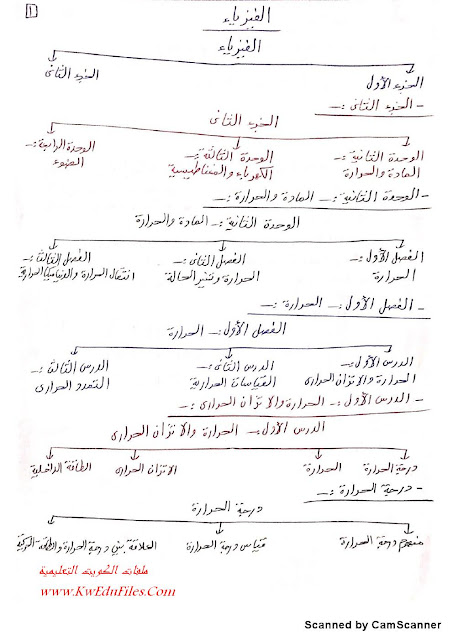 1
الفيزياء
الفيزياء
الجزء الأول
الجزء الثاني
- الجزء الثاني :-
الجزء الثاني
الوحدة الثانية :- الوحدة الثالثة :- الوحدة الرابعة :-
المادة والحرارة الكهرباء والمغناطيسية الضوء
- الوحدة الثانية :- المادة والحرارة :-
الوحدة الثانية :- المادة والحرارة
الفصل الأول :- الفصل الثاني :- الفصل الثالث :-
الحرارة الحرارة وتغير الحالة انتقال الحرارة والديناميكا الحرارية
- الفصل الأول :- الحرارة :-
الفصل الأول :- الحرارة
الدرس الأول :- الدرس الثاني :- الدرس الثالث :-
الحرارة والاتزان الحراري القياسات الحرارية التمدد الحراري
- الدرس الأول :- الحرارة والاتزان الحراري :-
الدرس الأول :- الحرارة والاتزان الحراري
درجة الحرارة الحرارة الاتزان الحراري الطاقة الداخلية
- درجة الحرارة :-
درجة الحرارة
مفهوم درجة الحرارة مقياس درجة الحرارة العلاقة بين درجة الحرارة والطاقة الحركية
ملفات الكويت التعليمية
www.KwEdnFiles.Com
Scanned by CamScanner